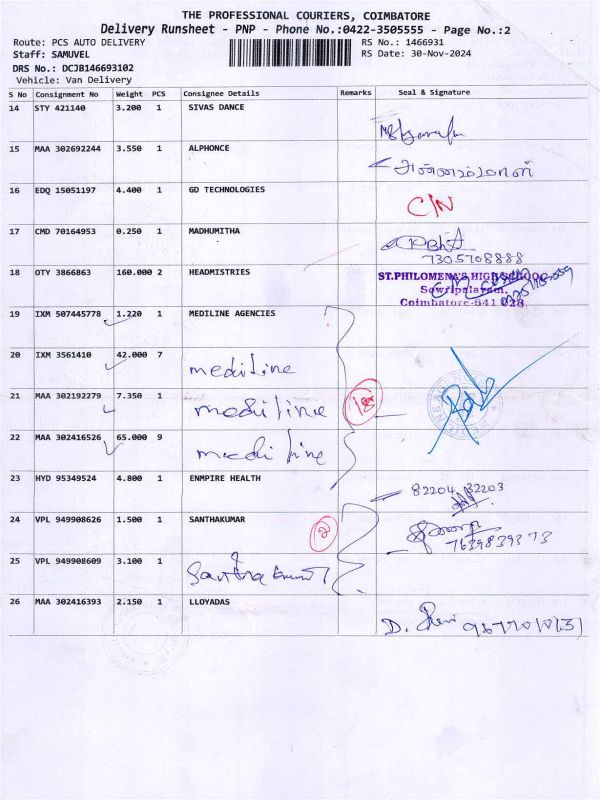 THE PROFESSIONAL COURIERS, COIMBATORE
Delivery Runsheet - PNP - Phone No.:0422-3505555 - Page No.:2
Route: PCS AUTO DELIVERY
Staff: SAMUVEL
DRS No.: DCJB146693102
Vehicle: Van Delivery
RS No.: 1466931
RS Date: 30-Nov-2024
S No Consignment No Weight PCS Consignee Details Remarks Seal & Signature
14 STY 421140 3.200 1 SIVAS DANCE
15 MAA 302692244 3.550 1 ALPHONCE
16 EDQ 15051197 4.400 1 GD TECHNOLOGIES C/N
17 CMD 70164953 0.250 1 MADHUMITHA
7305708888
18 OTY 3866863 160.000 2 HEADMISTRIES ST.PHILOMENA'S HIGH SCHOOL
Sowripalayam,
Coimbatore-641 028.
19 IXM 507445778 1.220 1 MEDILINE AGENCIES
20 IXM 3561410 42.000 7 mediline
21 MAA 302192279 7.350 1 mediline 18
22 MAA 302416526 65.000 9 mediline
23 HYD 95349524 4.800 1 ENMPIRE HEALTH 82204 32203
24 VPL 949908626 1.500 1 SANTHAKUMAR 2
7639839373
25 VPL 949908609 3.100 1
26 MAA 302416393 2.150 1 LLOYADAS
D.